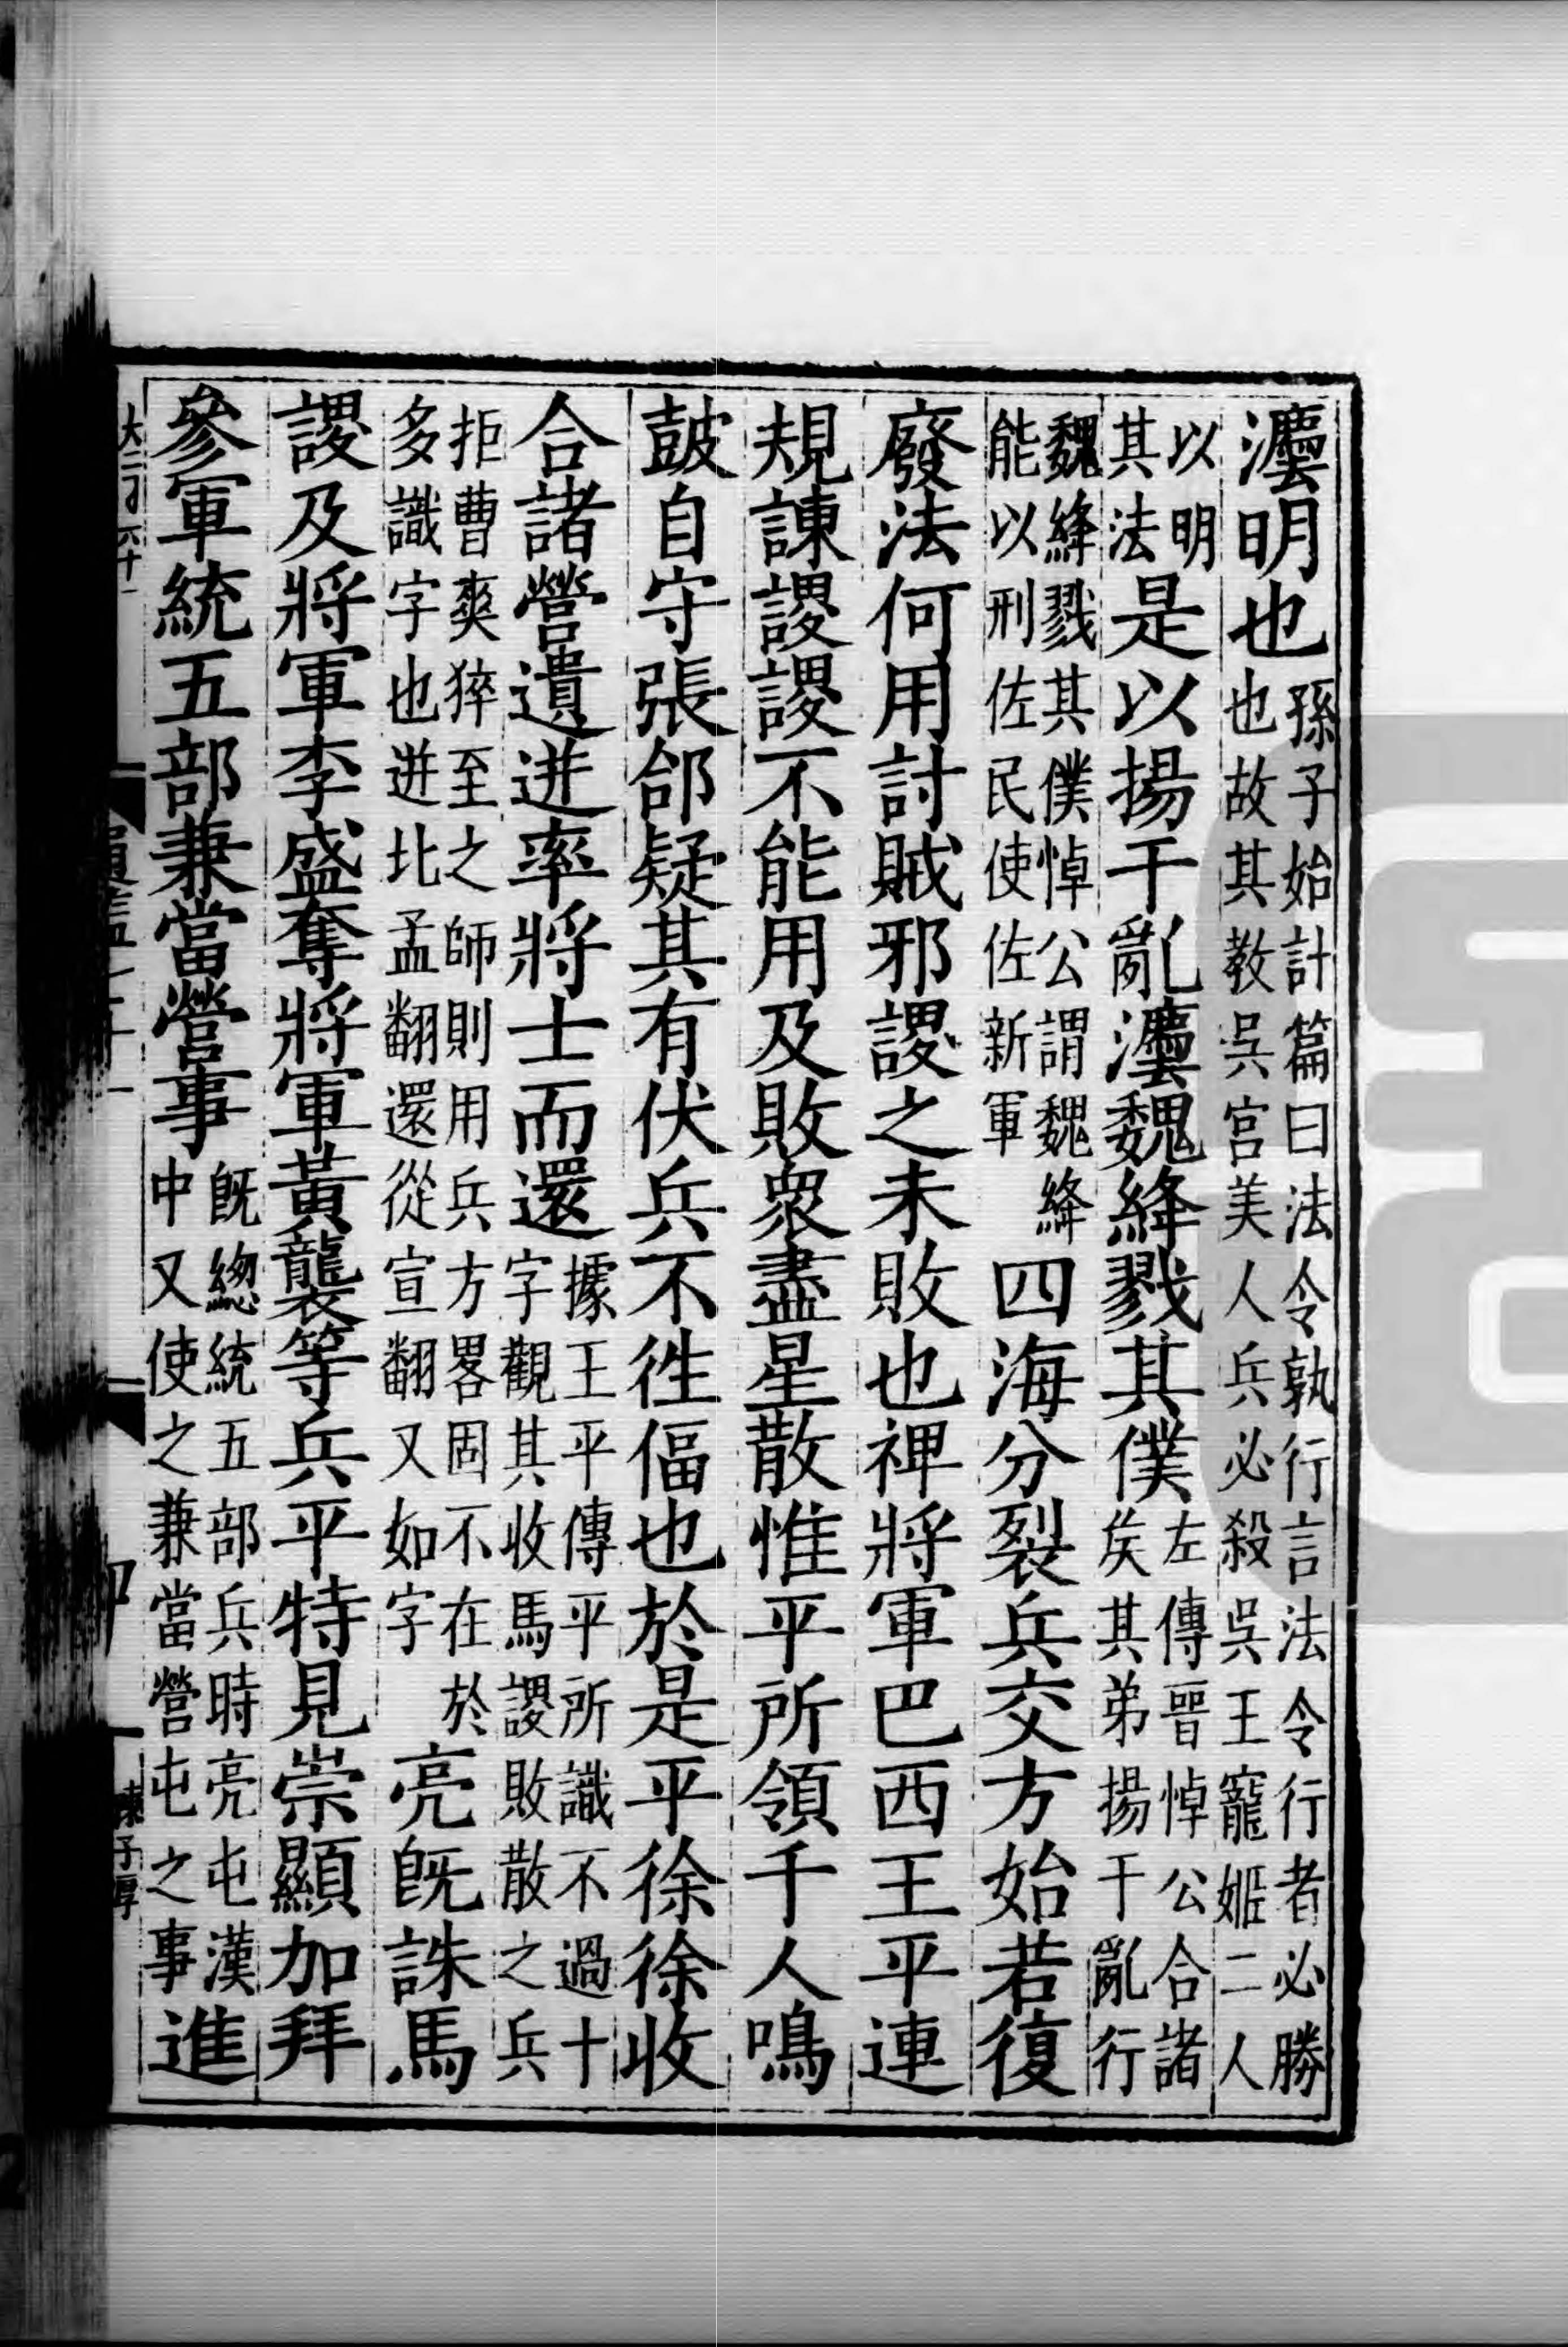 灋明也孫子始計篇曰法令孰行言法令行者必勝也故其教吳宮美人兵必殺吳王寵姬二人
以明其法是以揚干亂灋魏絳戮其僕左傳晉悼公合諸矦其弟揚干亂行
魏絳戮其僕悼公謂魏絳能以刑佐民使佐新軍四海分裂兵交方始若復
廢法何用討賊邪謖之未敗也裨將軍巴西王平連
規諫謖謖不能用及敗衆盡星散惟平所領千人鳴
鼓自守張郃疑其有伏兵不徃偪也於是平徐徐收
合諸營遺迸率將士而還據王平傳平所識不過十字觀其收馬謖敗散之兵
拒曹爽猝至之師則用兵方畧固不在於多識字也迸北孟翻還從宣翻又如字亮旣誅馬
謖及將軍李盛奪將軍黃襲等兵平特見崇顯加拜
參軍統五部兼當營事旣緫統五部兵時亮屯漢中又使之兼當營屯之事進